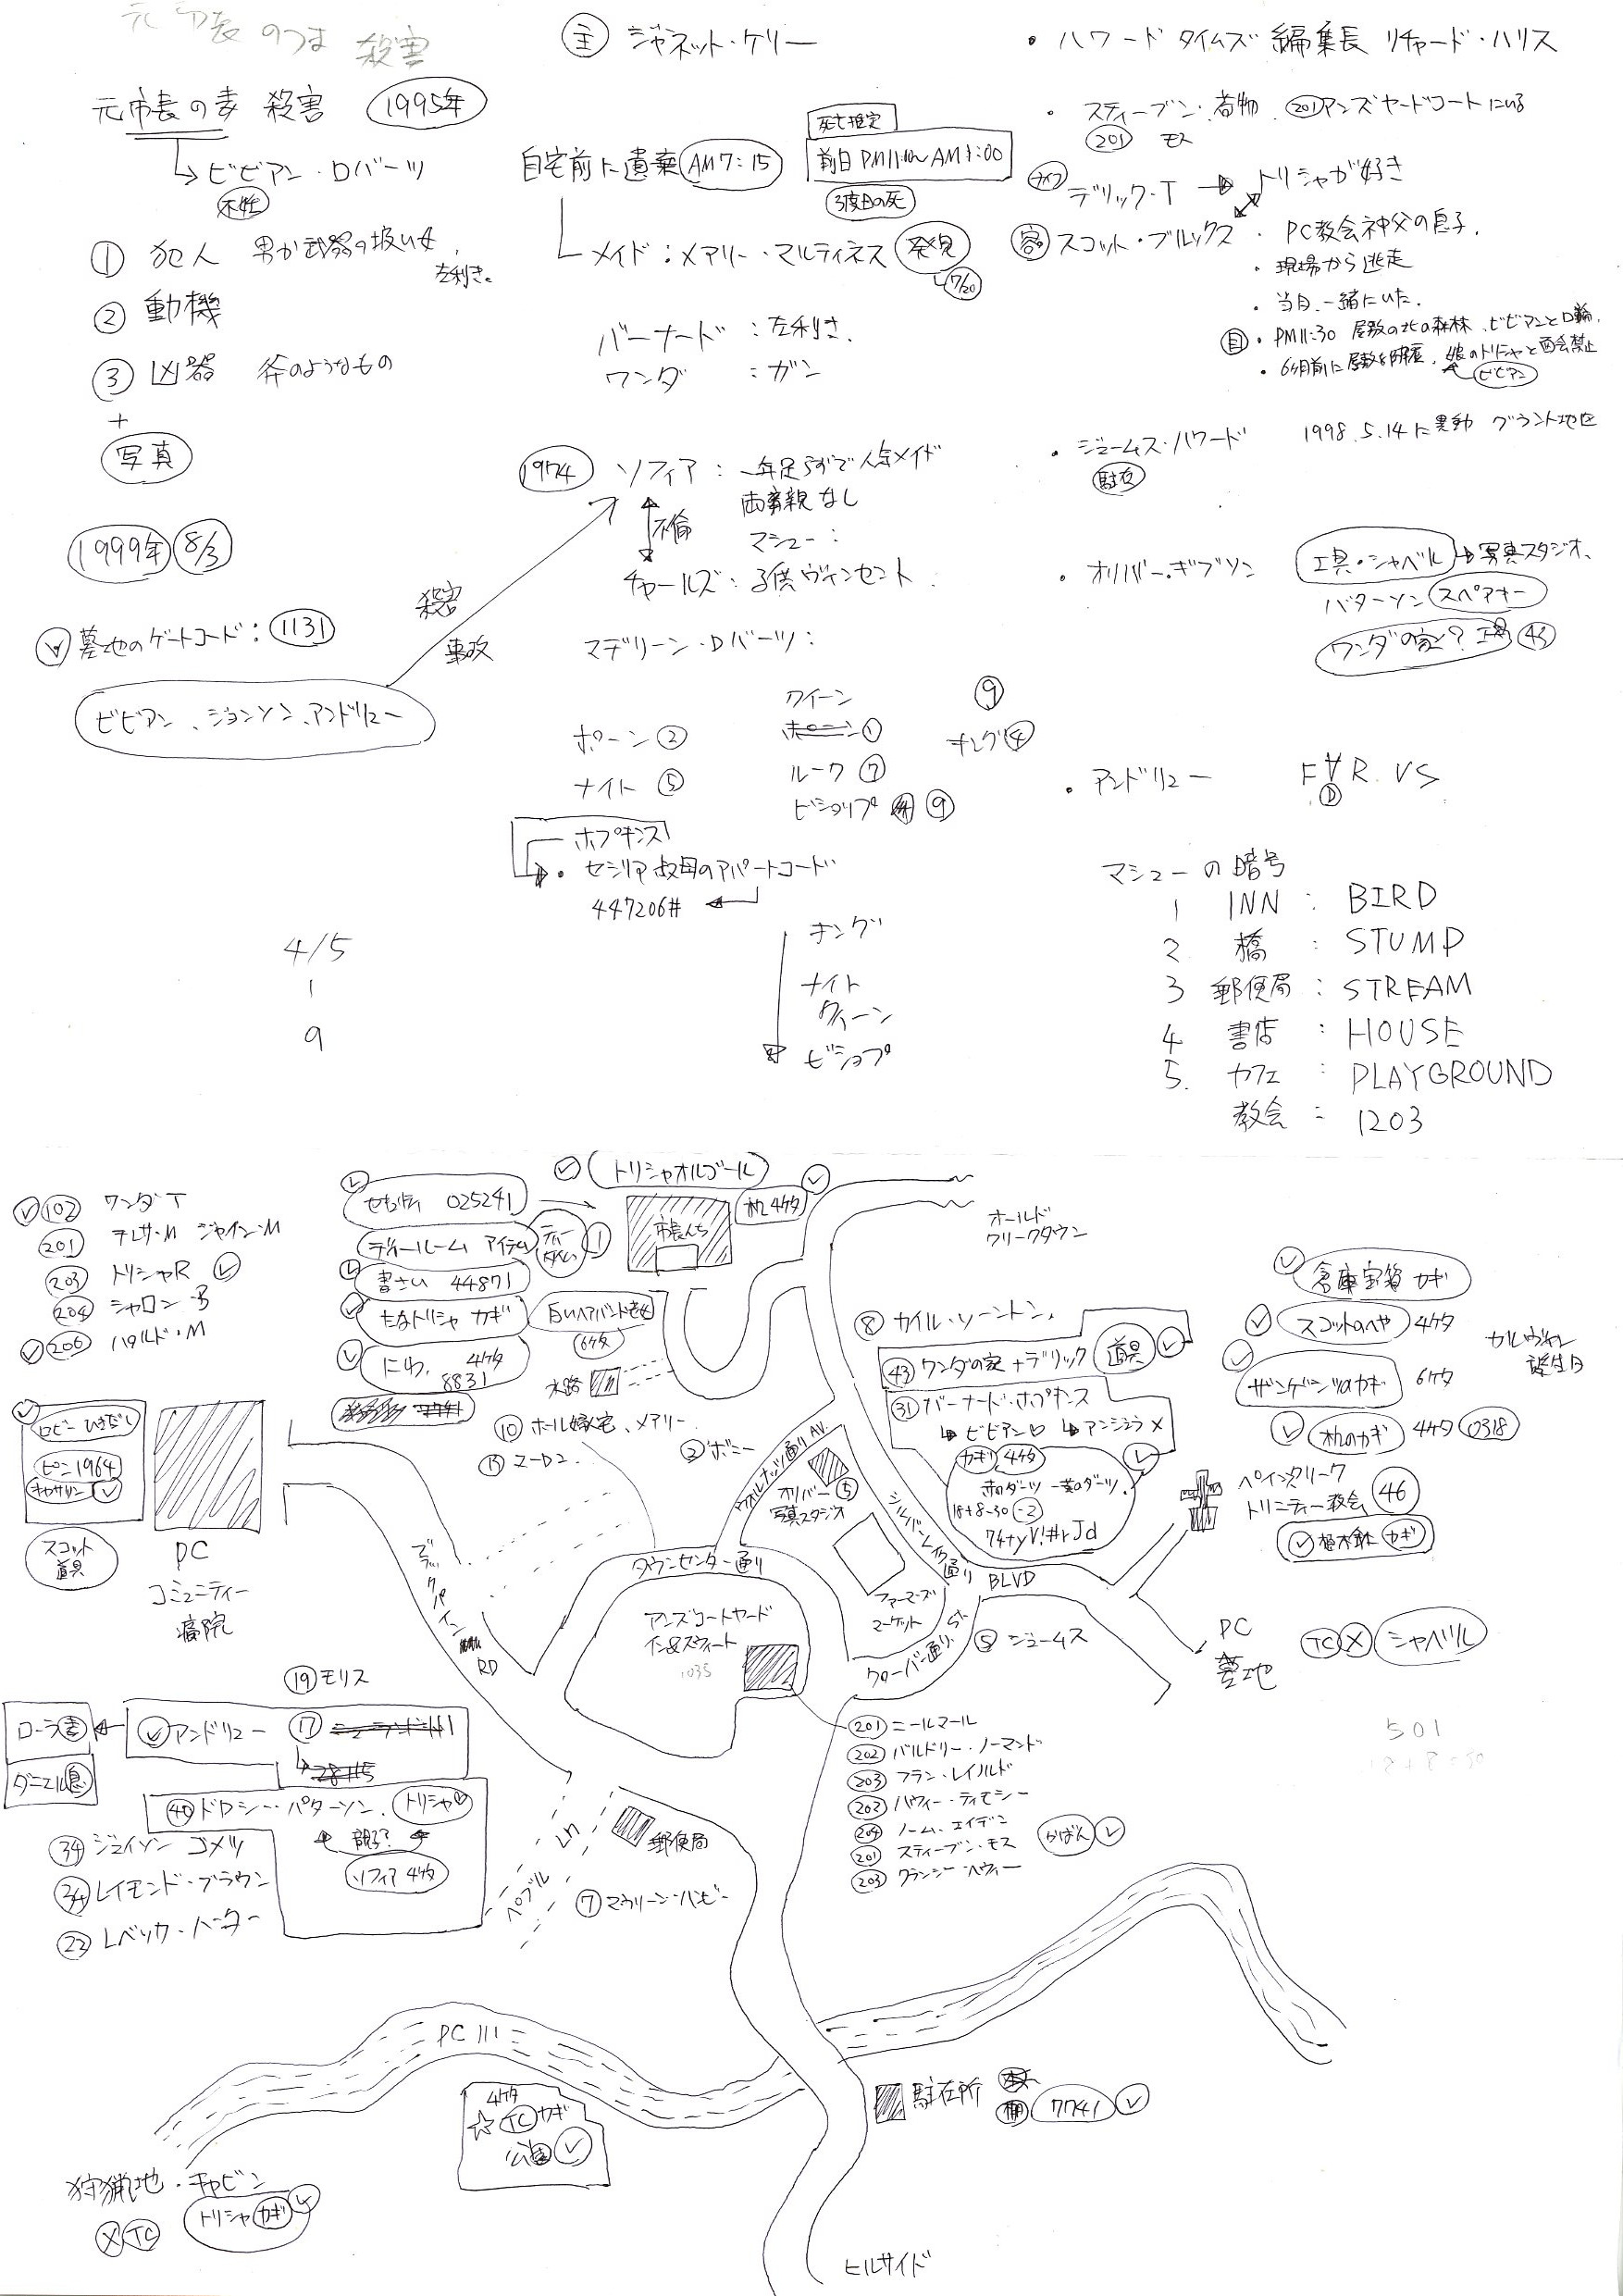 元市長のつま 殺害
元市長の妻 殺害 1995年
ビビアン・ロバーツ
① 犯人 男か武器の扱い女
左利き。
② 動機
③ 凶器 斧のようなもの
+
写真
主 ジャネット・ケリー
死亡推定
自宅前に遺棄 AM7:15
前日PM11:00~AM1:00
3度目の死
メイド:メアリー・マルティネス 発見
7/20
バーナード :左利き.
ワンダ :ガン
・ハワード タイムズ 編集長 リチャード・ハリス
・スティーブン.荷物. 201 アンズヤードコートにいる
201 モス
デリック・T → トリシャが好き
スコット・ブルックス ・PC教会神父の息子.
・現場から逃走
・当日.一緒にいた.
・PM11:30 屋敷の北の森林.ビビアンと口論.
・6ヶ月前に屋敷を 娘のトリシャと面会禁止
ビビアン
1999年 8/3
墓地のゲートコード: 1131
ビビアン、ジョンソン、アンドリュー
殺害
事故
1974 ソフィア:一年足らずで人気メイド
両親なし
不倫
マシュー:
チャールズ:子供ヴィンセント
マデリーン・ロバーツ:
・ジェームス・ハワード 1998.5.14に異動 グラント地区
駐在
・オリバー・ギブソン 工具・シャベル → 写真スタジオ、
パターソン スペアキー
ワンダの家? 43
クイーン ⑨
ポーン ② ポーン ① キング ④
ナイト ⑤ ルーク ⑦
ビショップ ⑨
・アンドリュー F R. VS
D
ホプキンス
・セシリア叔母のアパートコード
447206#
4/5
9
キング
ナイト
クイーン
ビショプ
マシューの暗号
1 INN : BIRD
2 橋 : STUMP
3 郵便局 : STREAM
4 書店 : HOUSE
5. カフェ : PLAYGROUND
教会 : 1203
102 ワンダT
201 テレサ・M ジャイン・M
203 トリシャR
204 シャロン・B
206 ハロルド・M
025241
ティールーム アイテム
書さい 44871
たなトリシャ カギ
にわ. 4ケタ
8831
トリシャオルゴール
市長んち
机4ケタ
白いヘアバンド
6ケタ
水路
オールド
クリークタウン
倉庫宝箱 カギ
スコットのへや 4ケタ
カギ 6ケタ
誕生日
机のカギ 4ケタ 0318
⑧ カイル・ソーントン.
43 ワンダの家+デリック 道具
31 バーナード・ホプキンス
ビビアン♡ アンジェラ×
カギ 4ケタ
赤のダーツ-黄のダーツ.
18+8-30 -2
74+yV!#rJd
ペインズクリーク
トリニティー教会 46
植木鉢 カギ
⑩ ホール嫁宅、メアリー
② ボニー
ウォルナッツ通りAV.
オリバー ⑤
写真スタジオ
シルバーレイク通り BLVD
ロビー ひきだし
ピン1964
キャサリン
スコット
道具
PC
コミュニティー
病院
ブラックパイン RD
タウンセンター通り
アンズコートヤード
イン&スウィート
1035
ファーマーズ
マーケット
クローバー通り. ST
⑤ ジェームス
PC
墓地
TC X シャベル
501
18+8-30
⑲ モリス
ローラ 妻
アンドリュー ⑰
ダニエル 息
40 ドロシー・パターソン. トリシャ
ソフィア 4ケタ
34 ジェイソン ゴメツ
24 レイモンド・ブラウン
23 レベッカ・ハーター
ペブル LN
郵便局
⑦ マウリーン・ハンビー
201 ニールマール
202 バルドリー・ノーマンド
203 フラン・レイノルド
202 ハウィー・ティモシー
204 ノーム.エイデン
201 スティーブン・モス かばん
203 クランシー・ヘウィー
PC 川
4ケタ
☆ TC カギ
公園
駐在所 7741
狩猟地・キャビン
X TC トリシャ カギ
ヒルサイド